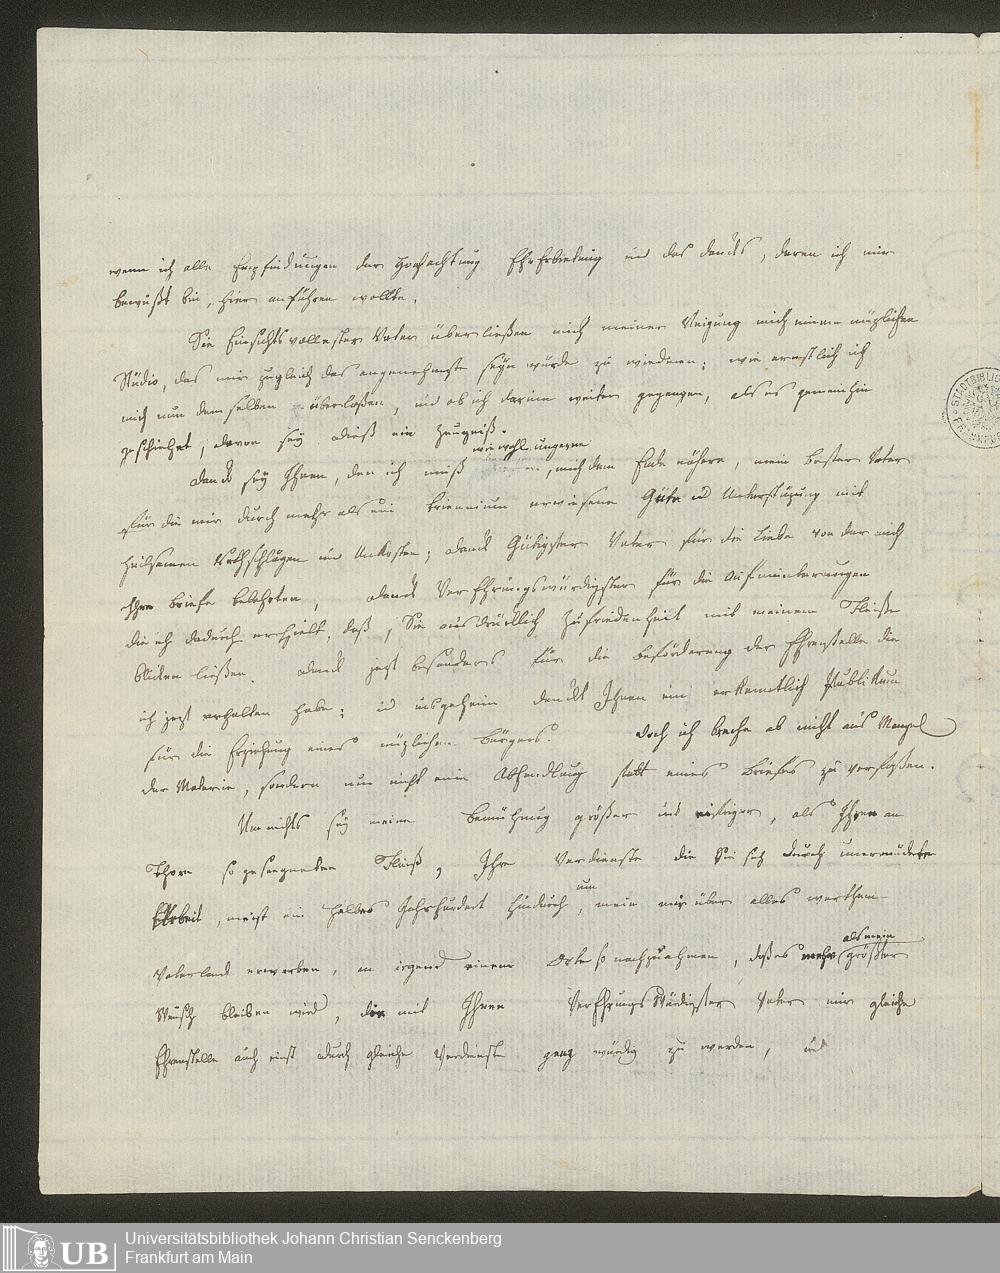 wenn ich alle Empfindungen der Hochachtung Ehrerbietung und des Danks, deren ich mir
bewußt bin, hier anführen wollte.
Sie Einsichtsvollester Vater überließen mich meiner Neigung mich einem nüzlichen
Studio, das mir zugleich das angenehmste seyn würde zu wiedmen; wie ernstlich ich
mich nun demselben überlaßen, und ob ich darinn weiter gegangen, als es gemeinhin
geschiehet, davon sey dieß ein Zeugniß.
wiewohl ungerne
Dank sey Ihnen, den ich muß mich dem Ende nähern, mein bester Vater
für die mir durch mehr als ein triennium erwiesene Güte und Unterstüzung mit
heilsamen Rathschlägen und Unkosten; Dank Gütigster Vater für die Liebe von der mich
Ihre Briefe belehrten, Dank Verehrungswürdigster für die Aufmunterungen
die ich dadurch erhielt, daß Sie ausdrücklich Zufriedenheit mit meinem Fleiße
bliken ließen. Dank jezt besonders für die Beförderung der Ehrenstelle die
ich jezt erhalten habe; und insgeheim dankt Ihnen ein erkenntlich Publikum
für die Erziehung eines nüzlichen Bürgers. Doch ich breche ab nicht aus Mangel
der Materie, sondern um nicht eine Abhandlung statt eines Briefes zu verfaßen.
Um nichts sey meine Bemühung größer und eifriger, als Ihren an
Thorn so gesegneten Fleiß, Ihre Verdienste die Sie sich durch unermüdete
Arbeit, meist ein halbes Jahrhundert hindurch, um mein mir über alles werthem
Vaterland erworben, an irgend einem Orte so nachzuahmen, daß es
als mein größter
Wunsch bleiben wird, mit Ihnen Verehrungswürdigster Vater mir gleiche
Ehrenstelle auch einst durch gleiche Verdienste ganz würdig zu werden, und
STADTBIBLIO
FRANKFUR
UB
Universitätsbibliothek Johann Christian Senckenberg
Frankfurt am Main